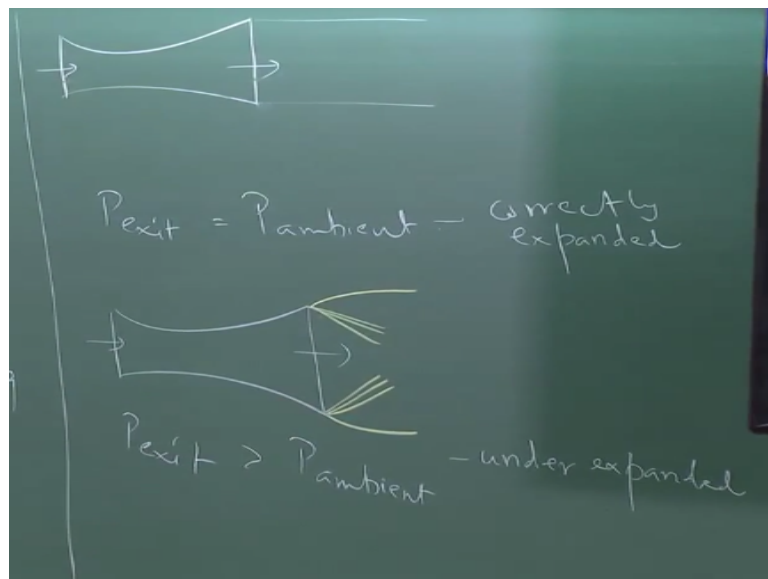 Pexit = Pambient - correctly
expanded
Pexit > Pambient - under expanded